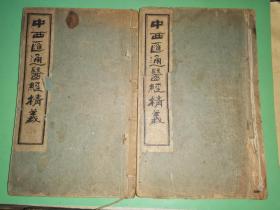 中西匯通醫經精義
中西匯通醫經精義